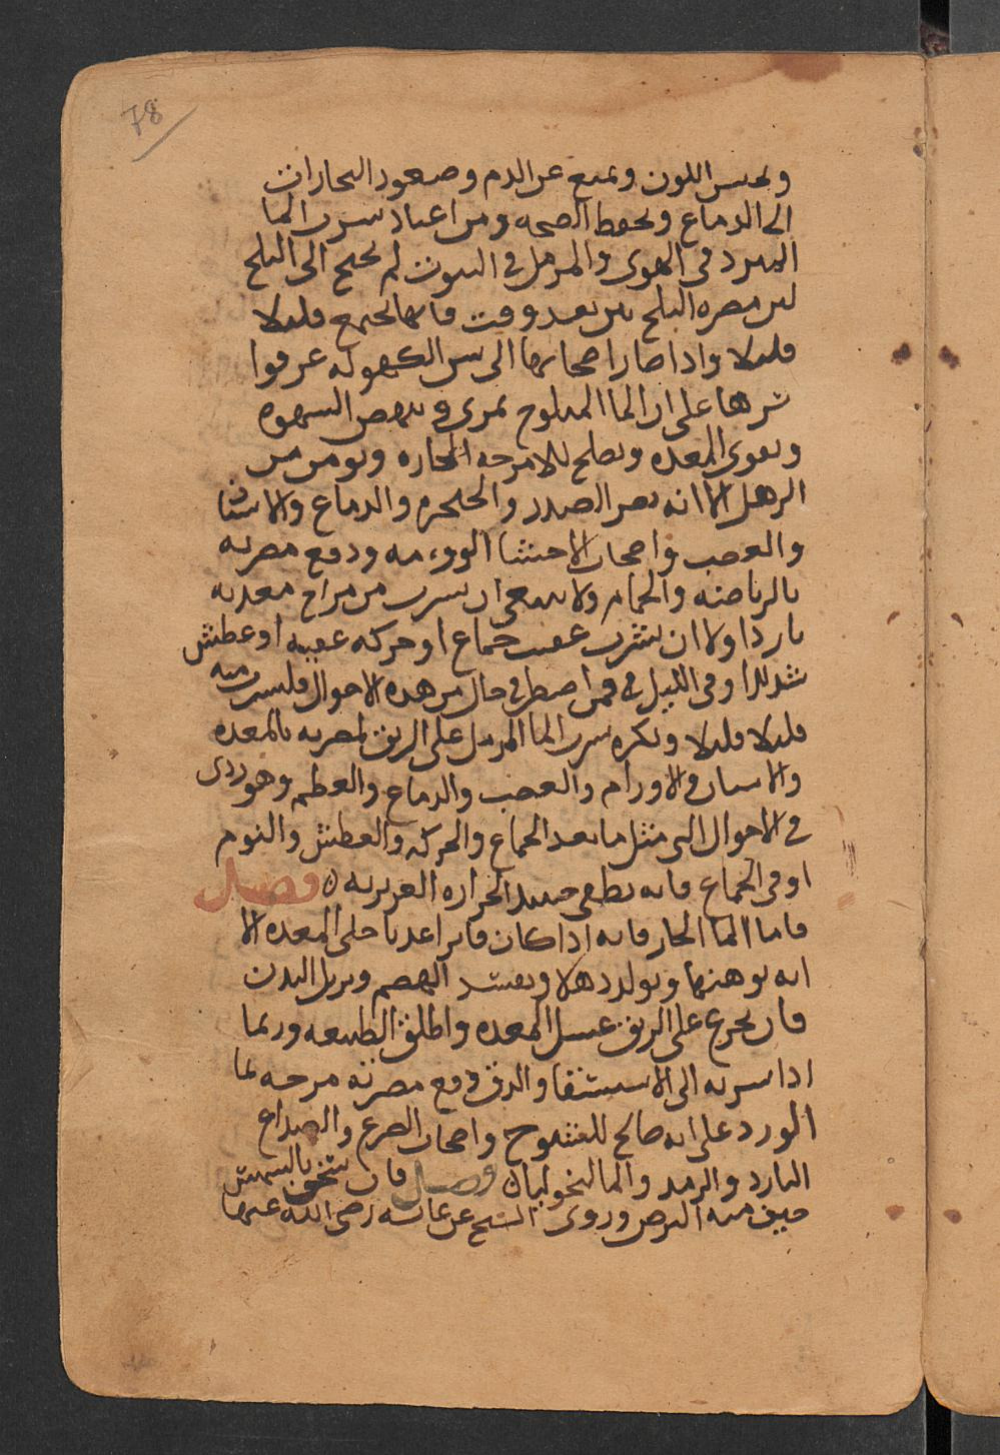 78
ويحسن اللون ويمنع عن الدم وصعود البخارات
الى الدماغ ويحفظ الصحه ومن اعتاد شرب الما
المبرد فى الهوى والمزمل فى البيوت لم يحتج الى الثلج
لان مضره الثلج تبين بعد وقت فانها تجتمع قليلا
قليلا واذا صار اصحابها الى سن الكهوله عرفوا
شرها على ان الما المثلوج يمرى وينهض الشهوه
ويقوى المعده ويصلح للامزجه الحاره ويومن من
الرهل الا انه يضر الصدر والحنجره والدماغ والاسنان
والعصب واصحاب الاحشا ودفع مضرته
بالرياضه والحمام ولا ينبغى ان يشرب من مزاج معدته
باردا ولا ان يشرب عقيب جماع او حركه عقيبه او عطش
شديدا وفى الليل فمن اضطر فى حال من هذه الاحوال فليشرب منه
قليلا قليلا ويكره شرب الما المزمل على الريق لمضرته بالمعده
والاسنان والاورام والعصب والدماغ والعظم وهو ردى
فى الاحوال التى مثل ما بعد الجماع والحركه والعطش والنوم
او فى الجماع فانه يطفى حينيذ الحراره الغريزيه ه فصل
فاما الما الحار فانه اذا كان فاترا عذبا جلى المعده الا
انه يوهنها ويولد رهلا ويفسد الهضم ويزيل البدن
فان تجرع على الريق غسل المعده واطلق الطبيعه وربما
ادا شربه الى الاستسقا والدق ودفع مضرته مزجه بما
الورد على انه صالح للشيوخ واصحاب الصرع والصداع
البارد والرمد والمالنخوليا ه فصل فان سخن بالشمس
خيف منه البرص وروى الشيخ عن عايشه رضى الله عنها